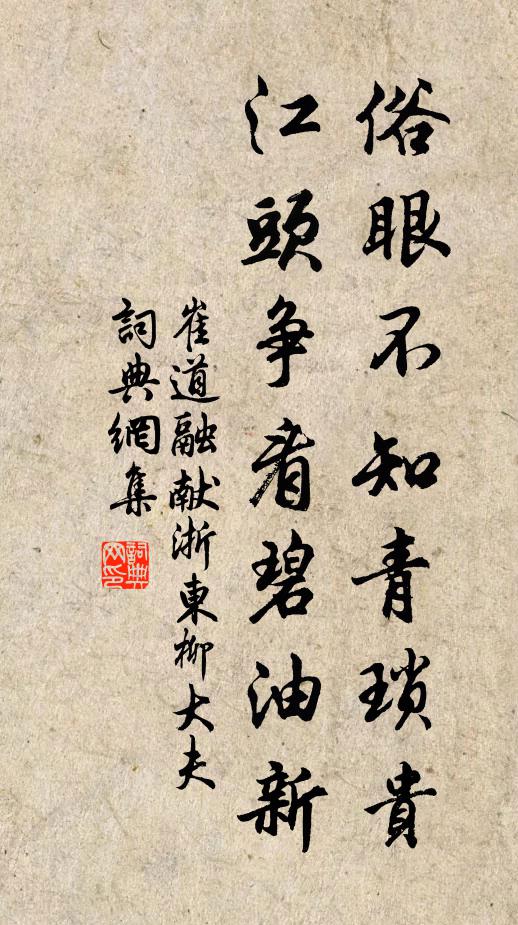 俗眼不知青瑣貴
江頭争看碧油新
崔道融献浙東柳大夫
詞典網集
詞典网印